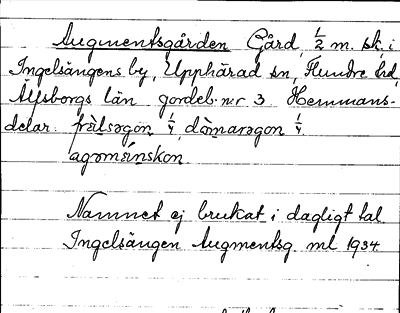 Augmentsgården Gård, 1/2 m. sk. i
Ingelsängens by, Upphärad sn, Flundre hd,
Älfsborgs län gordel. n:r 3 Hemmans-
delar. frälsegon 1/4 dömaregon 1/4.
agomänskon
Namnet ej brukat i dagligt tal
Ingelsängen Augmentsg. ml 1934